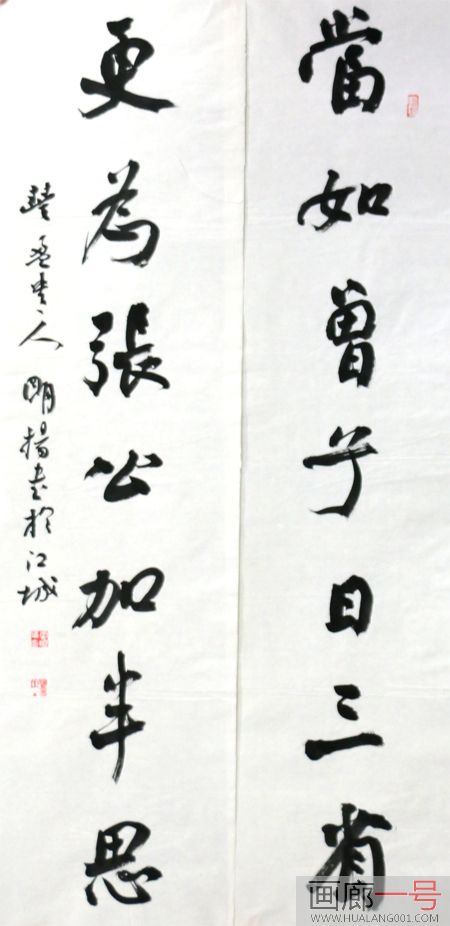 當如曾子日三省
更為張公加半思
明揚書於江城
画廊一号
WWW.HUALANG001.COM